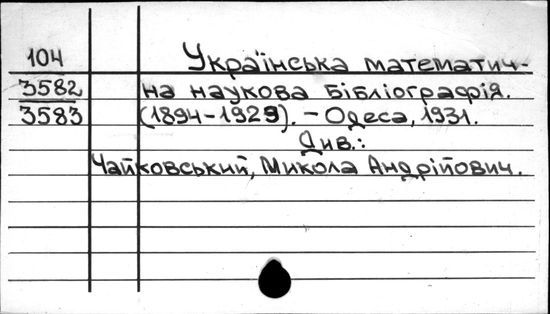 104 Українська математич-
3582 на наукова бібліографія.
3583 (1894-1929). - Одеса, 1931.
Див.:
Чайковський, Микола Андрійович.